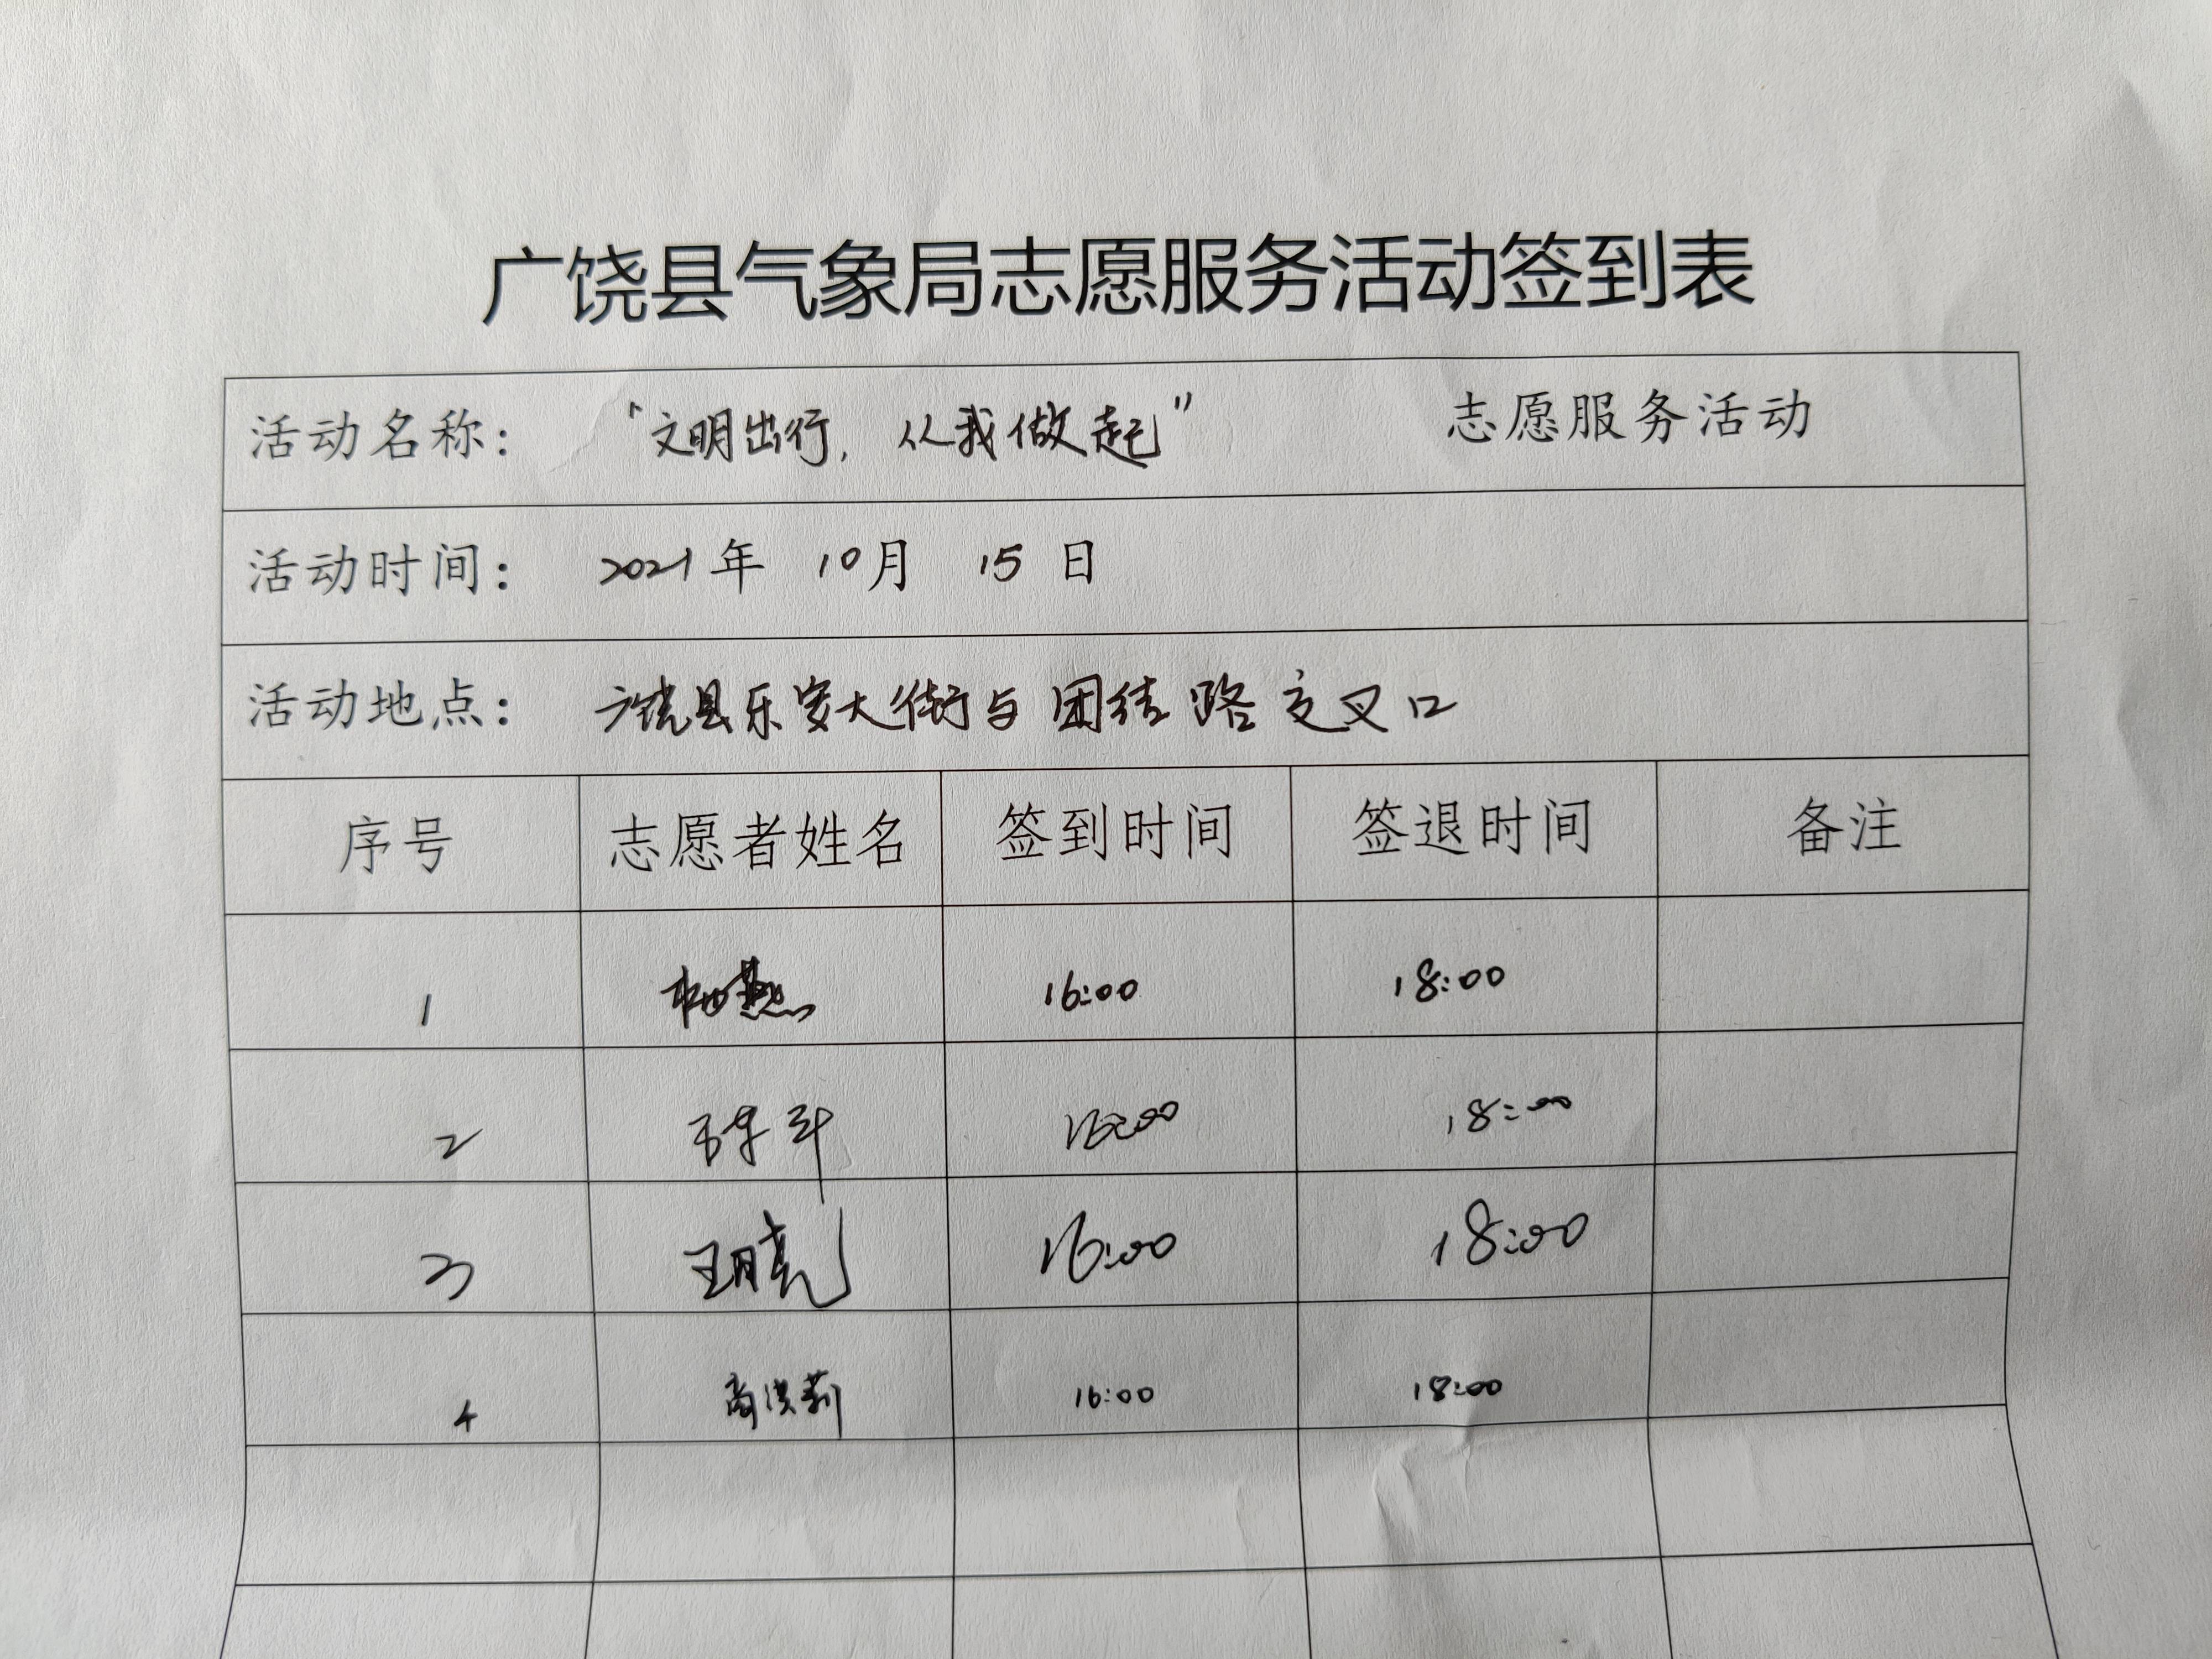 广饶县气象局志愿服务活动签到表
活动名称： “文明出行，从我做起” 志愿服务活动
活动时间： 2021年 10月 15日
活动地点： 广饶县乐安大街与团结路交叉口
序号 志愿者姓名 签到时间 签退时间 备注
1 16:00 18:00
2 16:00 18:00
3 王明亮 16:00 18:00
4 16:00 18:00